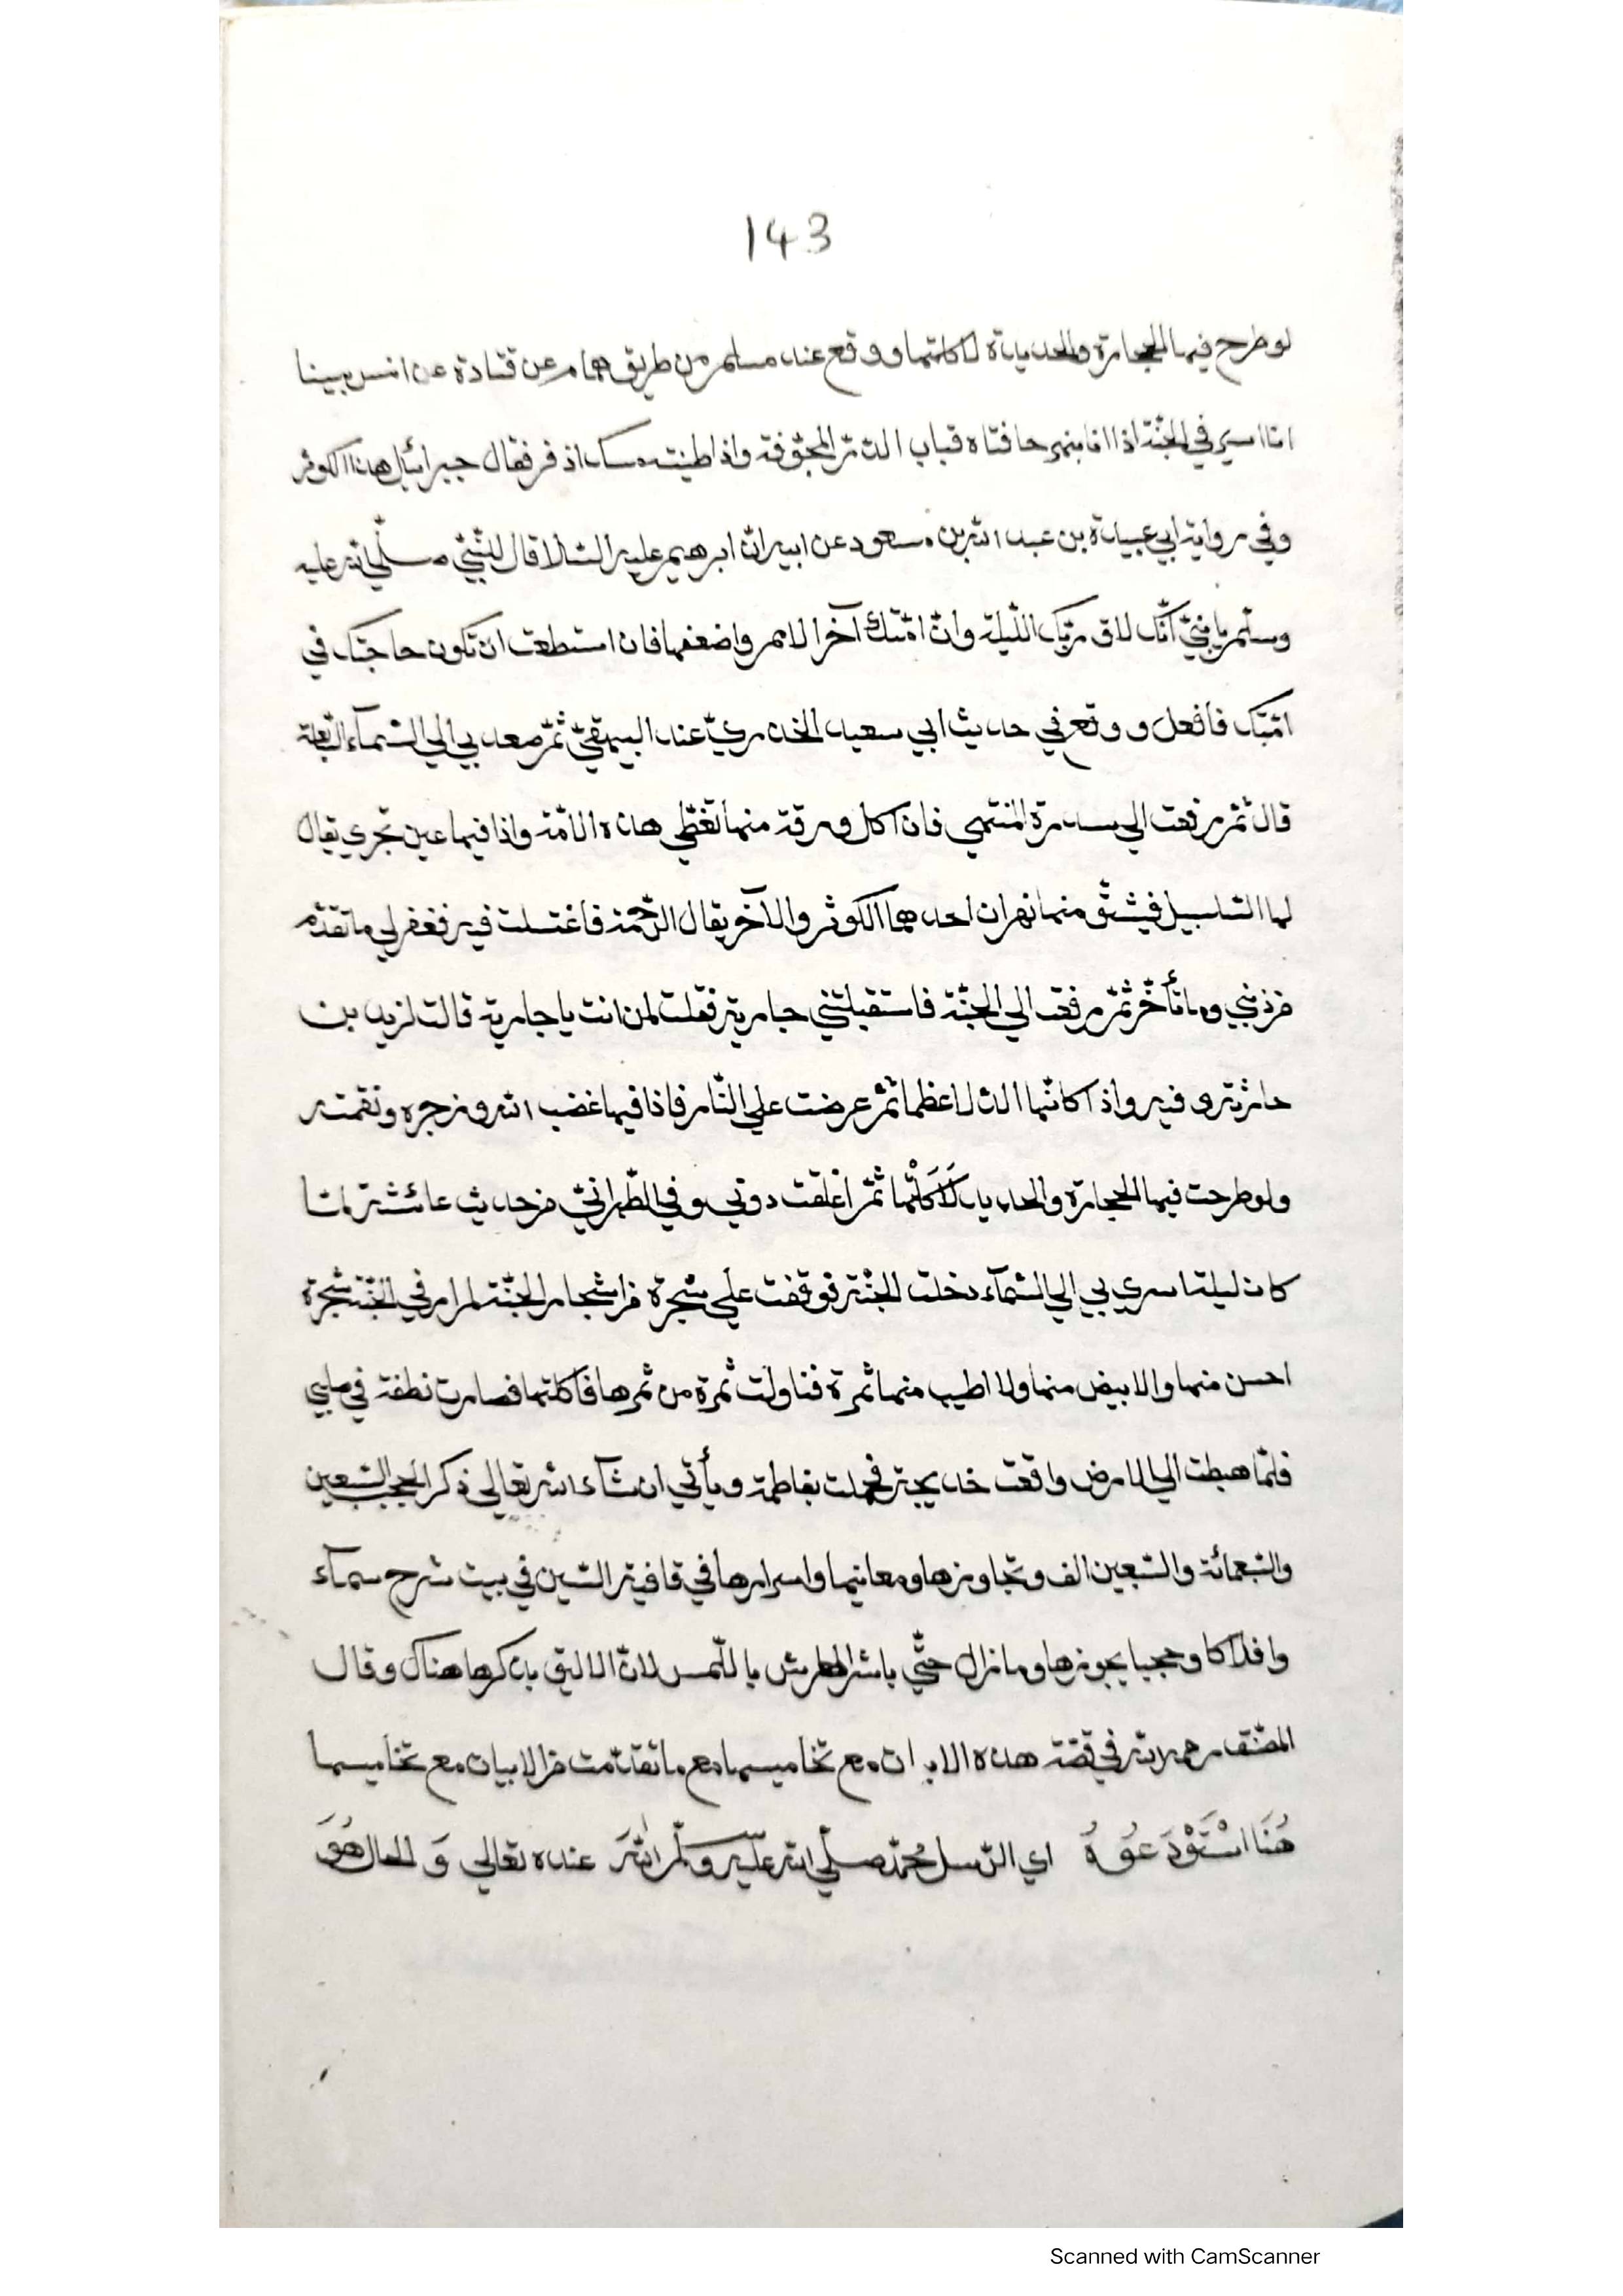 143
لو طرح فيها الحجارة والحديدة لاكلتها ووقع عند مسلم من طريق همام عن قتادة عن انس بينا
انا اسير في الجنّة اذا انا بنهر حافتاه قباب الدّرّ المجوّفة واذا طينته مسك اذفر فقال جبرائيل هذا الكوثر
وفي رواية ابي عبيدة بن عبد الله بن مسعود عن ابيه انّ ابرهيم عليه السّلام قال للنّبيّ صلّي الله عليه
وسلّم يا بنيّ انّك لاق ربّك اللّيلة وانّ امّتك آخر الامم واضعفها فان استطعت ان تكون حاجتك في
امّتك فافعل ووقع في حديث ابي سعيد الخدريّ عند البيهقيّ ثمّ صعد بي الي السّمآء السّابعة
قال ثمّ رفعت الي سدرة المنتهي فاذا كل ورقة منها تغطّي هذه الامّة واذا فيها عين تجري يقال
لها السّلسبيل فيشقّ منها نهران احدهما الكوثر والآخر يقال الرّحمة فاغتسلت فيه فغفر لي ما تقدّم
من ذنبي وما تأخّر ثمّ رفعت الي الجنّة فاستقبلتني جارية فقلت لمن انت يا جارية قالت لزيد بن
حارثة وفيه واذا كانّها الدلا عظما ثمّ عرضت علي النّار فاذا فيها غضب الله وزجره ونقمته
ولو طرحت فيها الحجارة والحديد لَاَكَلَتْها ثمّ اغلقت دوني وفي الطّبرانيّ من حديث عائشة لمّا
كان ليلة اسري بي الي السّمآء دخلت الجنّة فوقفت علي شجرة من اشجار الجنّة لم ار في الجنّة شجرة
احسن منها والابيض منها ولا اطيب منها ثمرة فتناولت ثمرة من ثمرها فاكلتها فصارت نطفة في صلبي
فلمّا هبطت الي الارض واقعت خديجة فحملت بفاطمة ويأتي ان شآء الله تعالي ذكر الحجب السّبعين
والسّبعمائة والسّبعين الف وتجاوزها ومعانيها واسرارها في قافية السّين في بيت شرح سمآء
وافلاكا وحجبا يجوزها وما زال حتّي باشر العرش باللّمس لانّ الاليق بذكرها هناك وقال
المصنّف رحمه الله في قصّة هذه الابيات مع تخاميسها مع ما تقدّمت من الابيات مع تخاميسها
هُنَا اسْتَوْدَعُوهُ اي الرّسل محمّد صلّي الله عليه وسلّم اللهَ عنده تعالي وَ الحال هُوَ
Scanned with CamScanner